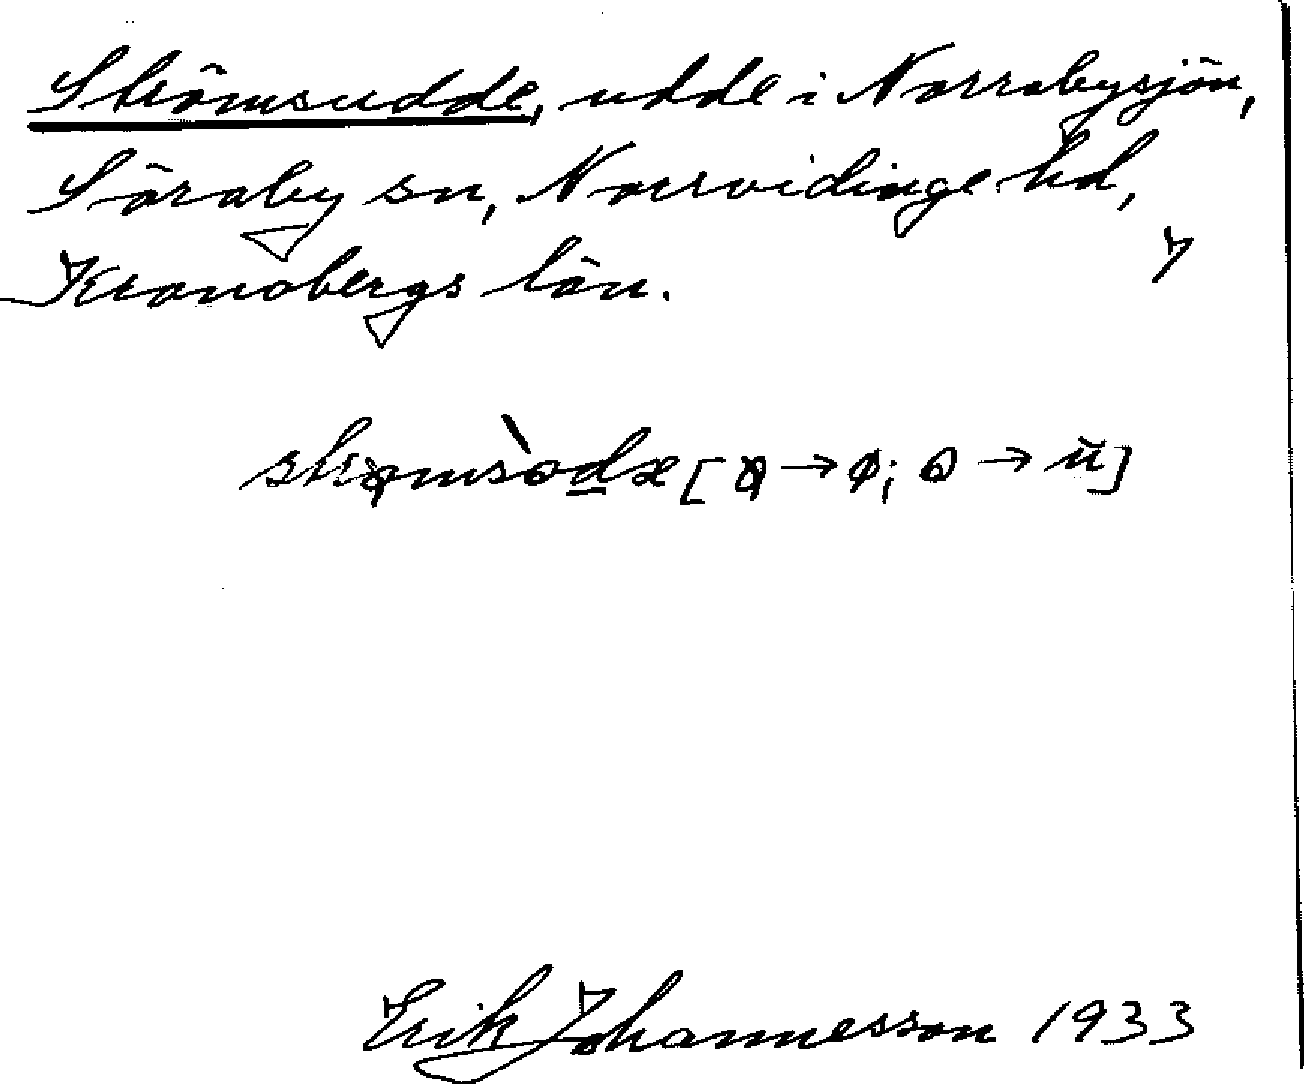 Strömsudde, udde i Norrabysjön,
Söraby sn, Norrvidinge hd,
Kronobergs län.
Erik Johannesson 1933